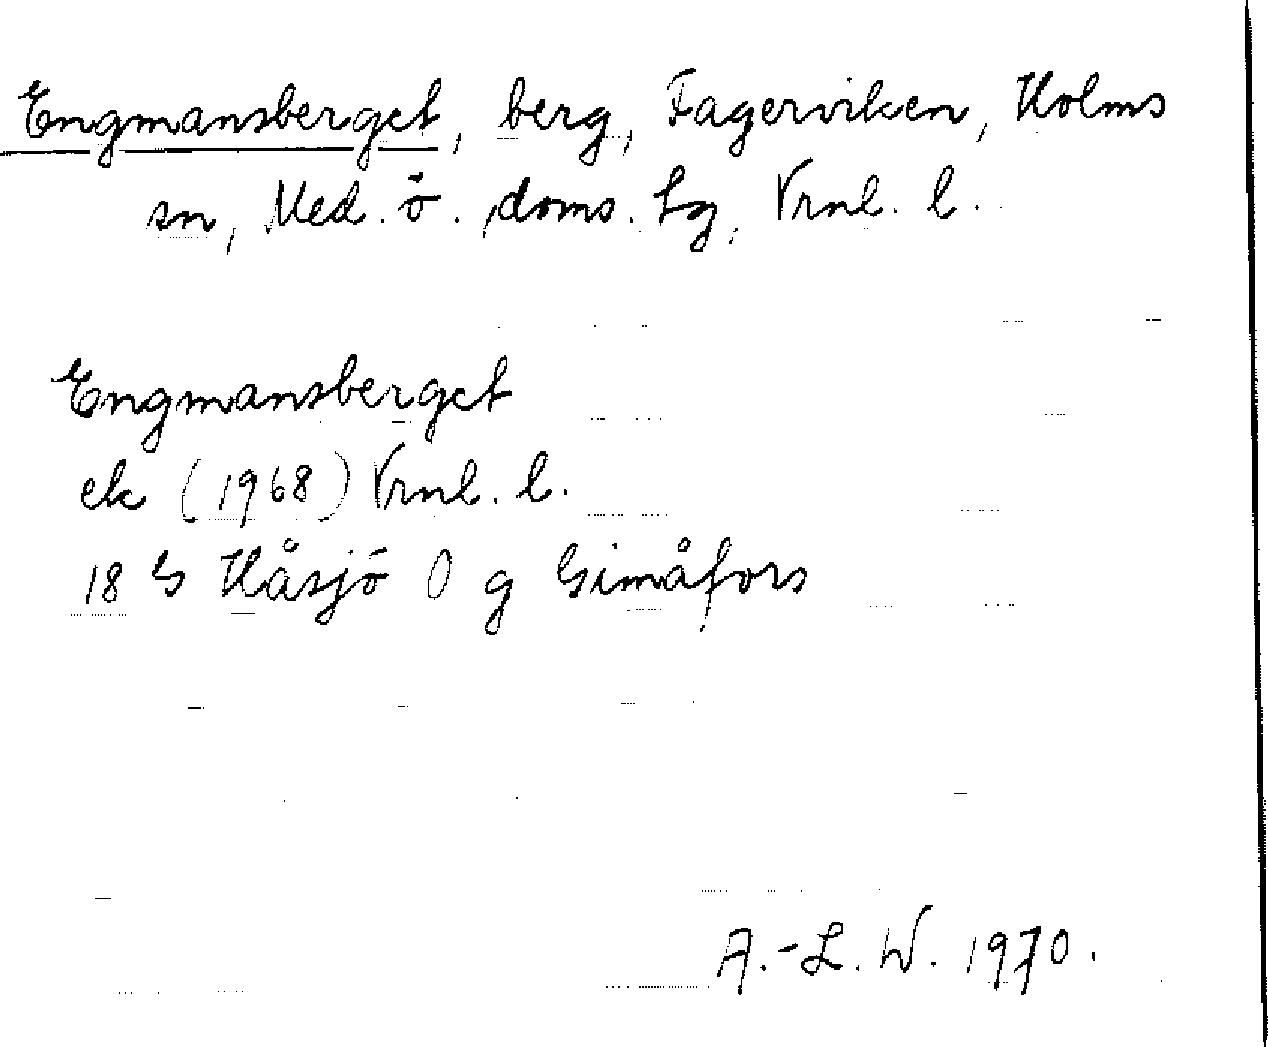 Engmansberget, berg, Fagerviken, Holms
sn, Med. ö. doms. tg, Vrnl. l.
Engmansberget
ek (1968) Vrnl. l.
18 G Håsjö O g Gimåfors
A.-L. W. 1970.